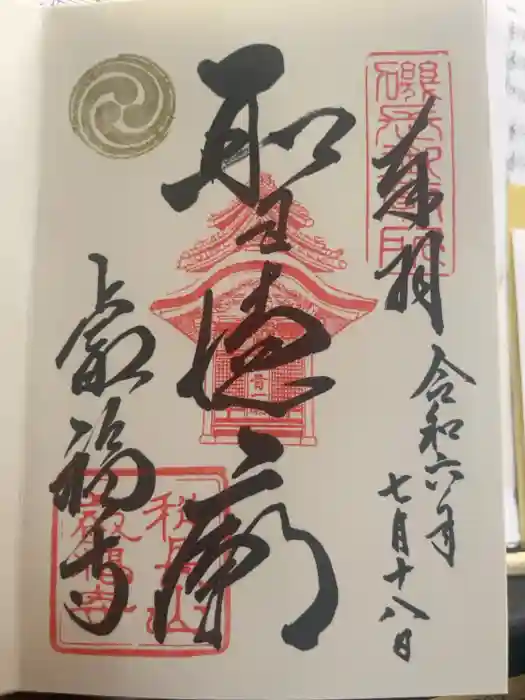 奉拝
令和六年
七月十八日
聖徳廟
叡福寺
科長山
叡福寺